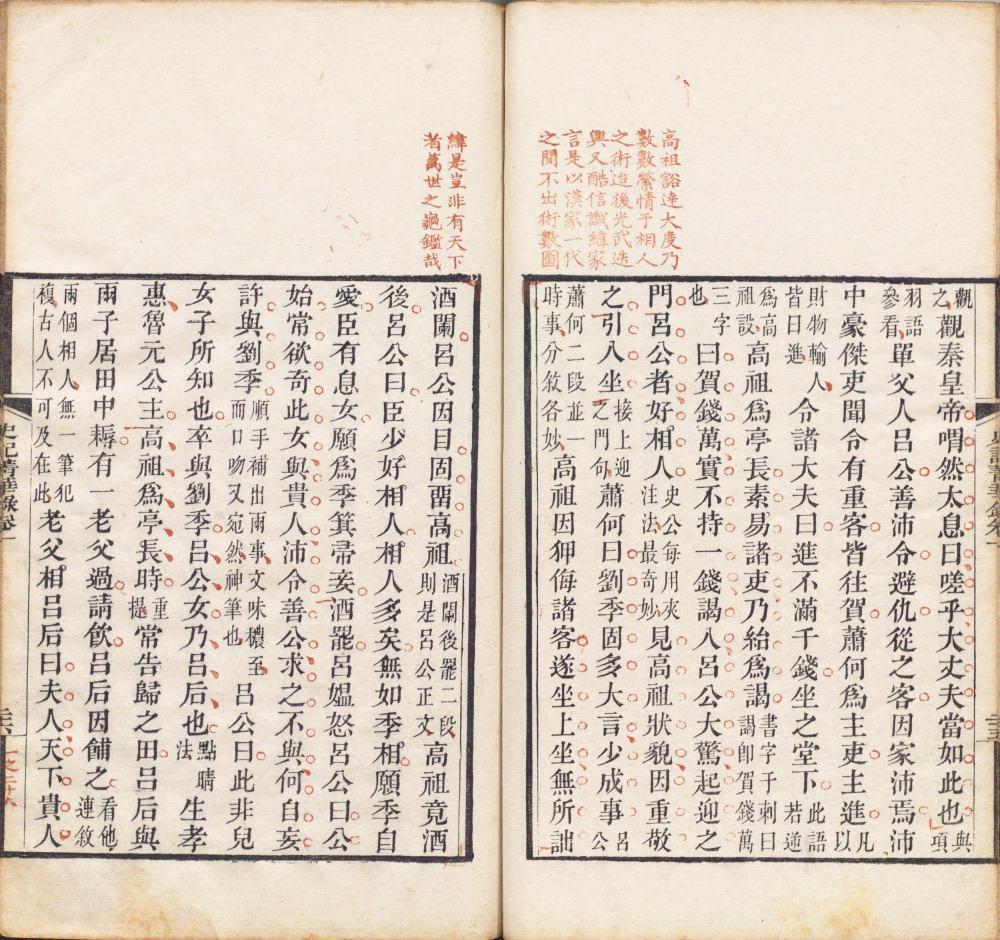 高祖豁達大度乃
數數縈情于相人
之術迨後光武迭
興又酷信讖緯家
言是以漢家一代
之間不出術數圖
觀之觀秦皇帝喟然太息曰嗟乎大丈夫當如此也與項
羽語參看單父人呂公善沛令避仇從之客因家沛焉沛
中豪傑吏聞令有重客皆往賀蕭何爲主吏主進凡以
財物輸皆曰進人令諸大夫曰進不滿千錢坐之堂下此語若逆
爲高祖設高祖爲亭長素易諸吏乃紿爲謁書字于刺曰謁卽賀錢萬
三字也曰賀錢萬實不持一錢謁入呂公大驚起迎之
門呂公者好相人史公每用夾注法最奇妙見高祖狀貌因重敬
之引入坐接上迎之門句蕭何曰劉季固多大言少成事呂公
蕭何二段並一時事分敘各妙高祖因狎侮諸客遂坐上坐無所詘
緯是豈非有天下
者萬世之龜鑑哉
酒闌呂公因目固畱高祖酒闌後罷二段則是呂公正文高祖竟酒
後呂公曰臣少好相人相人多矣無如季相願季自
愛臣有息女願爲季箕帚妾酒罷呂媼怒呂公曰公
始常欲奇此女與貴人沛令善公求之不與何自妄
許與劉季順手補出兩事文味穠至而口吻又宛然神筆也呂公曰此非兒
女子所知也卒與劉季呂公女乃呂后也點睛法生孝
惠魯元公主高祖爲亭長時重提常告歸之田呂后與
兩子居田中耨有一老父過請飲呂后因餔之看他連敘
兩個相人無一筆犯複古人不可及在此老父相呂后曰夫人天下貴人
史記菁華錄卷一